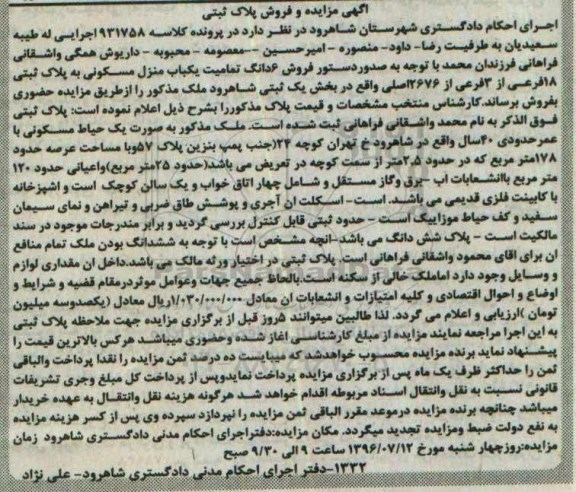 آگهی مزایده و فروش پلاک ثبتی
اجرای احکام دادگستری شهرستان شاهرود در نظر دارد در پرونده کلاسه ۹۳۱۷۵۸ اجرایی له طیبه
سعیدیان به طرفیت رضا- داود- منصوره - امیرحسین --معصومه - محبوبه - داریوش همگی واشقانی
فراهانی فرزندان محمد با توجه به صدوردستور فروش ۶دانگ تمامیت یکباب منزل مسکونی به پلاک ثبتی
۱۸فرعی از ۳فرعی از ۲۶۷۶اصلی واقع در بخش یک ثبتی شاهرود ملک مذکور را ازطریق مزایده حضوری
بفروش برساند.کارشناس منتخب مشخصات و قیمت پلاک مذکوررا بشرح ذیل اعلام نموده است: پلاک ثبتی
فوق الذکر به نام محمد واشقانی فراهانی ثبت شده است. ملک مذکور به صورت یک حیاط مسکونی با
عمرحدودی ۴۰سال واقع در شاهرود خ تهران کوچه ۲۴(جنب پمپ بنزین پلاک ۵۷وبا مساحت عرصه حدود
۱۷۸متر مربع که در حدود ۲.۵متر از سمت کوچه در تعریض می باشد(حدود ۲۵متر مربع)واعیانی حدود ۱۲۰
متر مربع باانشعابات آب -برق وگاز مستقل و شامل چهار اتاق خواب و یک سالن کوچک است و اشپزخانه
با کابینت فلزی قدیمی می باشد. است- اسکلت ان آجری و پوشش طاق ضربی و تیراهن و نمای سیمان
سفید و کف حیاط موزاییک است - حدود ثبتی قابل کنترل بررسی گردید و برابر مندرجات موجود در سند
مالکیت است - پلاک شش دانگ می باشد-انچه مشخص است با توجه به ششدانگ بودن ملک تمام منافع
ان برای اقای محمود واشقانی فراهانی است. پلاک ثبتی در اختیار ورثه مالک می باشد.داخل ان مقداری لوازم
و وسایل وجود دارد اماملک خالی از سکنه است.بالحاظ جمیع جهات وعوامل موثردرمقام قضیه و شرایط و
اوضاع و احوال اقتصادی و کلیه امتیازات و انشعابات ان معادل ۱/۰۳۰/۰۰۰/۰۰۰ریال معادل (یکصدوسه میلیون
تومان )ارزیابی و اعلام می گردد. لذا طالبین میتوانند ۵روز قبل از برگزاری مزایده جهت ملاحظه پلاک ثبتی
به این اجرا مراجعه نمایند مزایده از مبلغ کارشناسی اغاز شده وحضوری میباشد هرکس بالاترین قیمت را
پیشنهاد نماید برنده مزایده محسوب خواهدشد که میبایست ده درصد ثمن مزایده را نقدا پرداخت والباقی
ثمن را حداکثر ظرف یک ماه پس از برگزاری مزایده پرداخت نمایدوپس از پرداخت کل مبلغ وجری تشریفات
قانونی نسبت به نقل وانتقال اسناد مربوطه اقدام خواهد شد هرگونه هزینه نقل وانتقال به عهده خریدار
میباشد چنانچه برنده مزایده درموعد مقرر الباقی ثمن مزایده را نپردازد سپرده وی پس از کسر هزینه مزایده
به نفع دولت ضبط ومزایده تجدید میگردد. مکان مزایده:دفتراجرای احکام مدنی دادگستری شاهرود زمان
مزایده:روزچهار شنبه مورخ ۱۳۹۶/۰۷/۱۲ ساعت ۹ الی ۹/۳۰ صبح
۱۳۳۲-دفتر اجرای احکام مدنی دادگستری شاهرود- علی نژاد